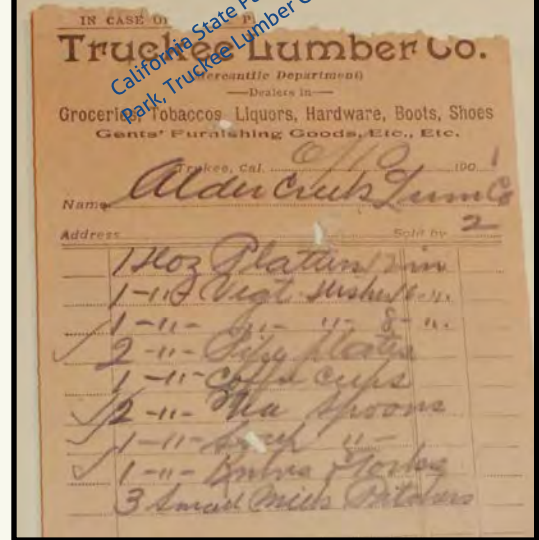 IN CASE OF
California State Pa
Park, Truckee Lumber C
Truckee Lumber Co.
(Mercantile Department)
—Dealers in—
Groceries, Tobaccos, Liquors, Hardware, Boots, Shoes
Gents' Furnishing Goods, Etc., Etc.
Truckee, Cal. 6/10 1901
Name Alder Creek Lum Co
Address Sold by 2
1 Doz Platters 12 in
1 -"- Vegt dishes "
1 -"- -"- "- 8 - ".
2 -"- Pie plates
1 -"- Coffe cups
2 -"- Tea Spoons
1 -"- "-
1 -"- Knives Forks
3 Small Milk Pitchers